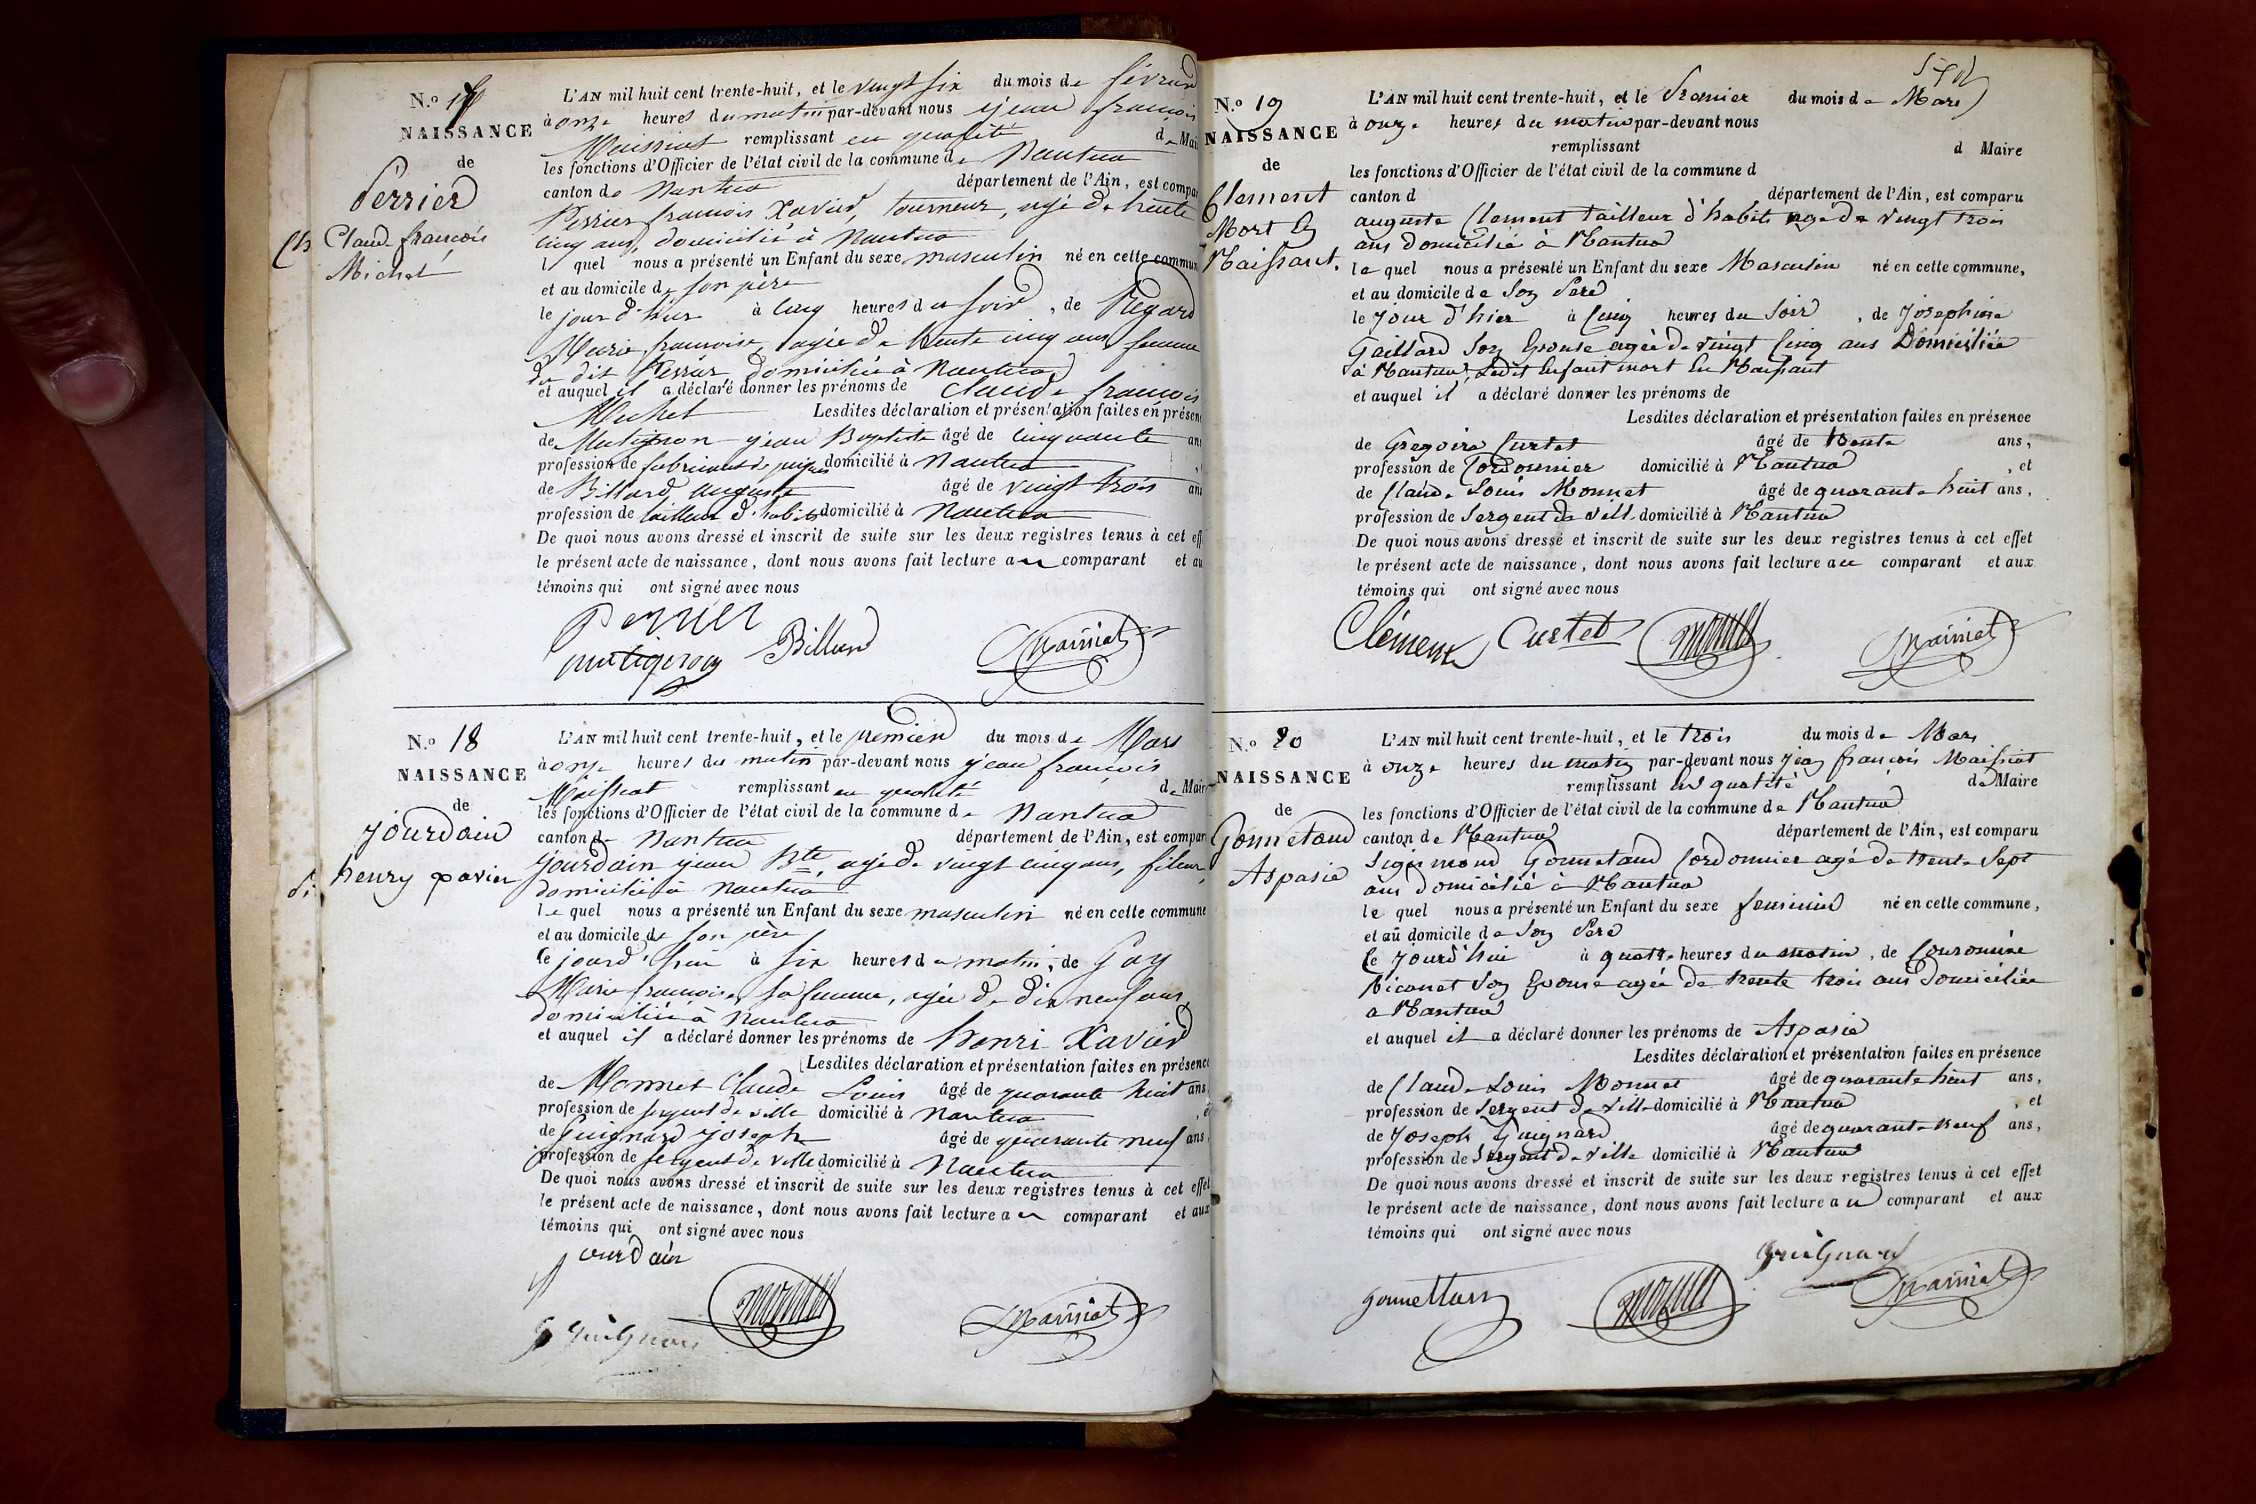 N.o 17
NAISSANCE
de
Perrier
Claude françois
Michel
L'AN mil huit cent trente-huit, et le vingt six du mois de février
à onze heures du matin par-devant nous jean françois
Maissiat remplissant en qualité de Mai
les fonctions d'Officier de l'état civil de la commune de Nantua
canton de Nantua département de l'Ain, est compar
Perrier françois Xavier, tourneur, agé de trente
cinq ans, domicilié à Nantua
l quel nous a présenté un Enfant du sexe masculin né en cette commun
et au domicile de son père
le jour d'hier à cinq heures du soir, de Regard
Marie françoise, agée de trente cinq ans femme
du dit Perrier domiciliée à Nantua
et auquel il a déclaré donner les prénoms de Claude françois
Michel Lesdites déclaration et présentation faites en présen
de Matignon jean Baptiste âgé de cinquante ans
profession de fabricant de peignes domicilié à Nantua
de Billard auguste âgé de vingt trois ans
profession de tailleur d'habits domicilié à Nantua
De quoi nous avons dressé et inscrit de suite sur les deux registres tenus à cet eff
le présent acte de naissance, dont nous avons fait lecture au comparant et au
témoins qui ont signé avec nous
Perrier
matignon Billard Maissiat
N.o 18
NAISSANCE
de
jourdain
henry xavier
L'AN mil huit cent trente-huit, et le premier du mois de Mars
à onze heures du matin par-devant nous jean françois
Maissiat remplissant en qualité de Mair
les fonctions d'Officier de l'état civil de la commune de Nantua
canton de Nantua département de l'Ain, est compar
jourdain jean Bte, agé de vingt cinq ans, fileur,
domicilié a Nantua
le quel nous a présenté un Enfant du sexe masculin né en cette commune
et au domicile de son père
le jourd'hui à six heures du matin, de Gay
Marie françoise, sa femme, agée de dix neuf ans,
domiciliée à Nantua
et auquel il a déclaré donner les prénoms de henri Xavier
Lesdites déclaration et présentation faites en présence
de Monnet Claude Louis âgé de quarante huit ans
profession de sergent de ville domicilié à Nantua, et
de Guignard joseph âgé de quarante neuf ans,
profession de sergent de ville domicilié à Nantua
De quoi nous avons dressé et inscrit de suite sur les deux registres tenus à cet effet
le présent acte de naissance, dont nous avons fait lecture au comparant et aux
témoins qui ont signé avec nous
jourdain
monnet Maissiat
guignard
N.o 19
NAISSANCE
de
Clement
Mort En
Naissant.
L'AN mil huit cent trente-huit, et le Premier du mois de Mars
à onze heures du matin par-devant nous
remplissant d Maire
les fonctions d'Officier de l'état civil de la commune d
canton d département de l'Ain, est comparu
auguste Clement tailleur d'habits age de vingt trois
ans domicilié à Nantua
le quel nous a présenté un Enfant du sexe Masculin né en cette commune,
et au domicile de Son Pere
le jour d'hier à Cinq heures du Soir, de Josephine
Gaillard Son Epouse agée de vingt Cinq ans Domiciliée
à Nantua, Ledit Enfant mort En Naissant
et auquel il a déclaré donner les prénoms de
Lesdites déclaration et présentation faites en présence
de Gregoire Curtet âgé de trente ans,
profession de Cordonnier domicilié à Nantua, et
de Claude Louis Monnet âgé de quarante huit ans,
profession de Sergent de ville domicilié à Nantua
De quoi nous avons dressé et inscrit de suite sur les deux registres tenus à cet effet
le présent acte de naissance, dont nous avons fait lecture au comparant et aux
témoins qui ont signé avec nous
Clément Curtet monnet Maissiat
N.o 20
NAISSANCE
de
Gonnetand
Aspasie
L'AN mil huit cent trente-huit, et le trois du mois de Mars
à onze heures du matin par-devant nous jean françois Maissiat
remplissant En qualité de Maire
les fonctions d'Officier de l'état civil de la commune de Nantua
canton de Nantua département de l'Ain, est comparu
Sigismond Gonnetand Cordonnier agé de trente Sept
ans domicilié à Nantua
le quel nous a présenté un Enfant du sexe feminin né en cette commune,
et au domicile de Son Pere
le jourd'hui à quatre heures du matin, de
Son Epouse agée de trente trois ans Domiciliée
a Nantua
et auquel il a déclaré donner les prénoms de Aspasie
Lesdites déclaration et présentation faites en présence
de Claude Louis Monnet âgé de quarante huit ans,
profession de Sergent de ville domicilié à Nantua, et
de Joseph Guignard âgé de quarante neuf ans,
profession de Sergent de ville domicilié à Nantua
De quoi nous avons dressé et inscrit de suite sur les deux registres tenus à cet effet
le présent acte de naissance, dont nous avons fait lecture au comparant et aux
témoins qui ont signé avec nous
guignard
monnet Maissiat